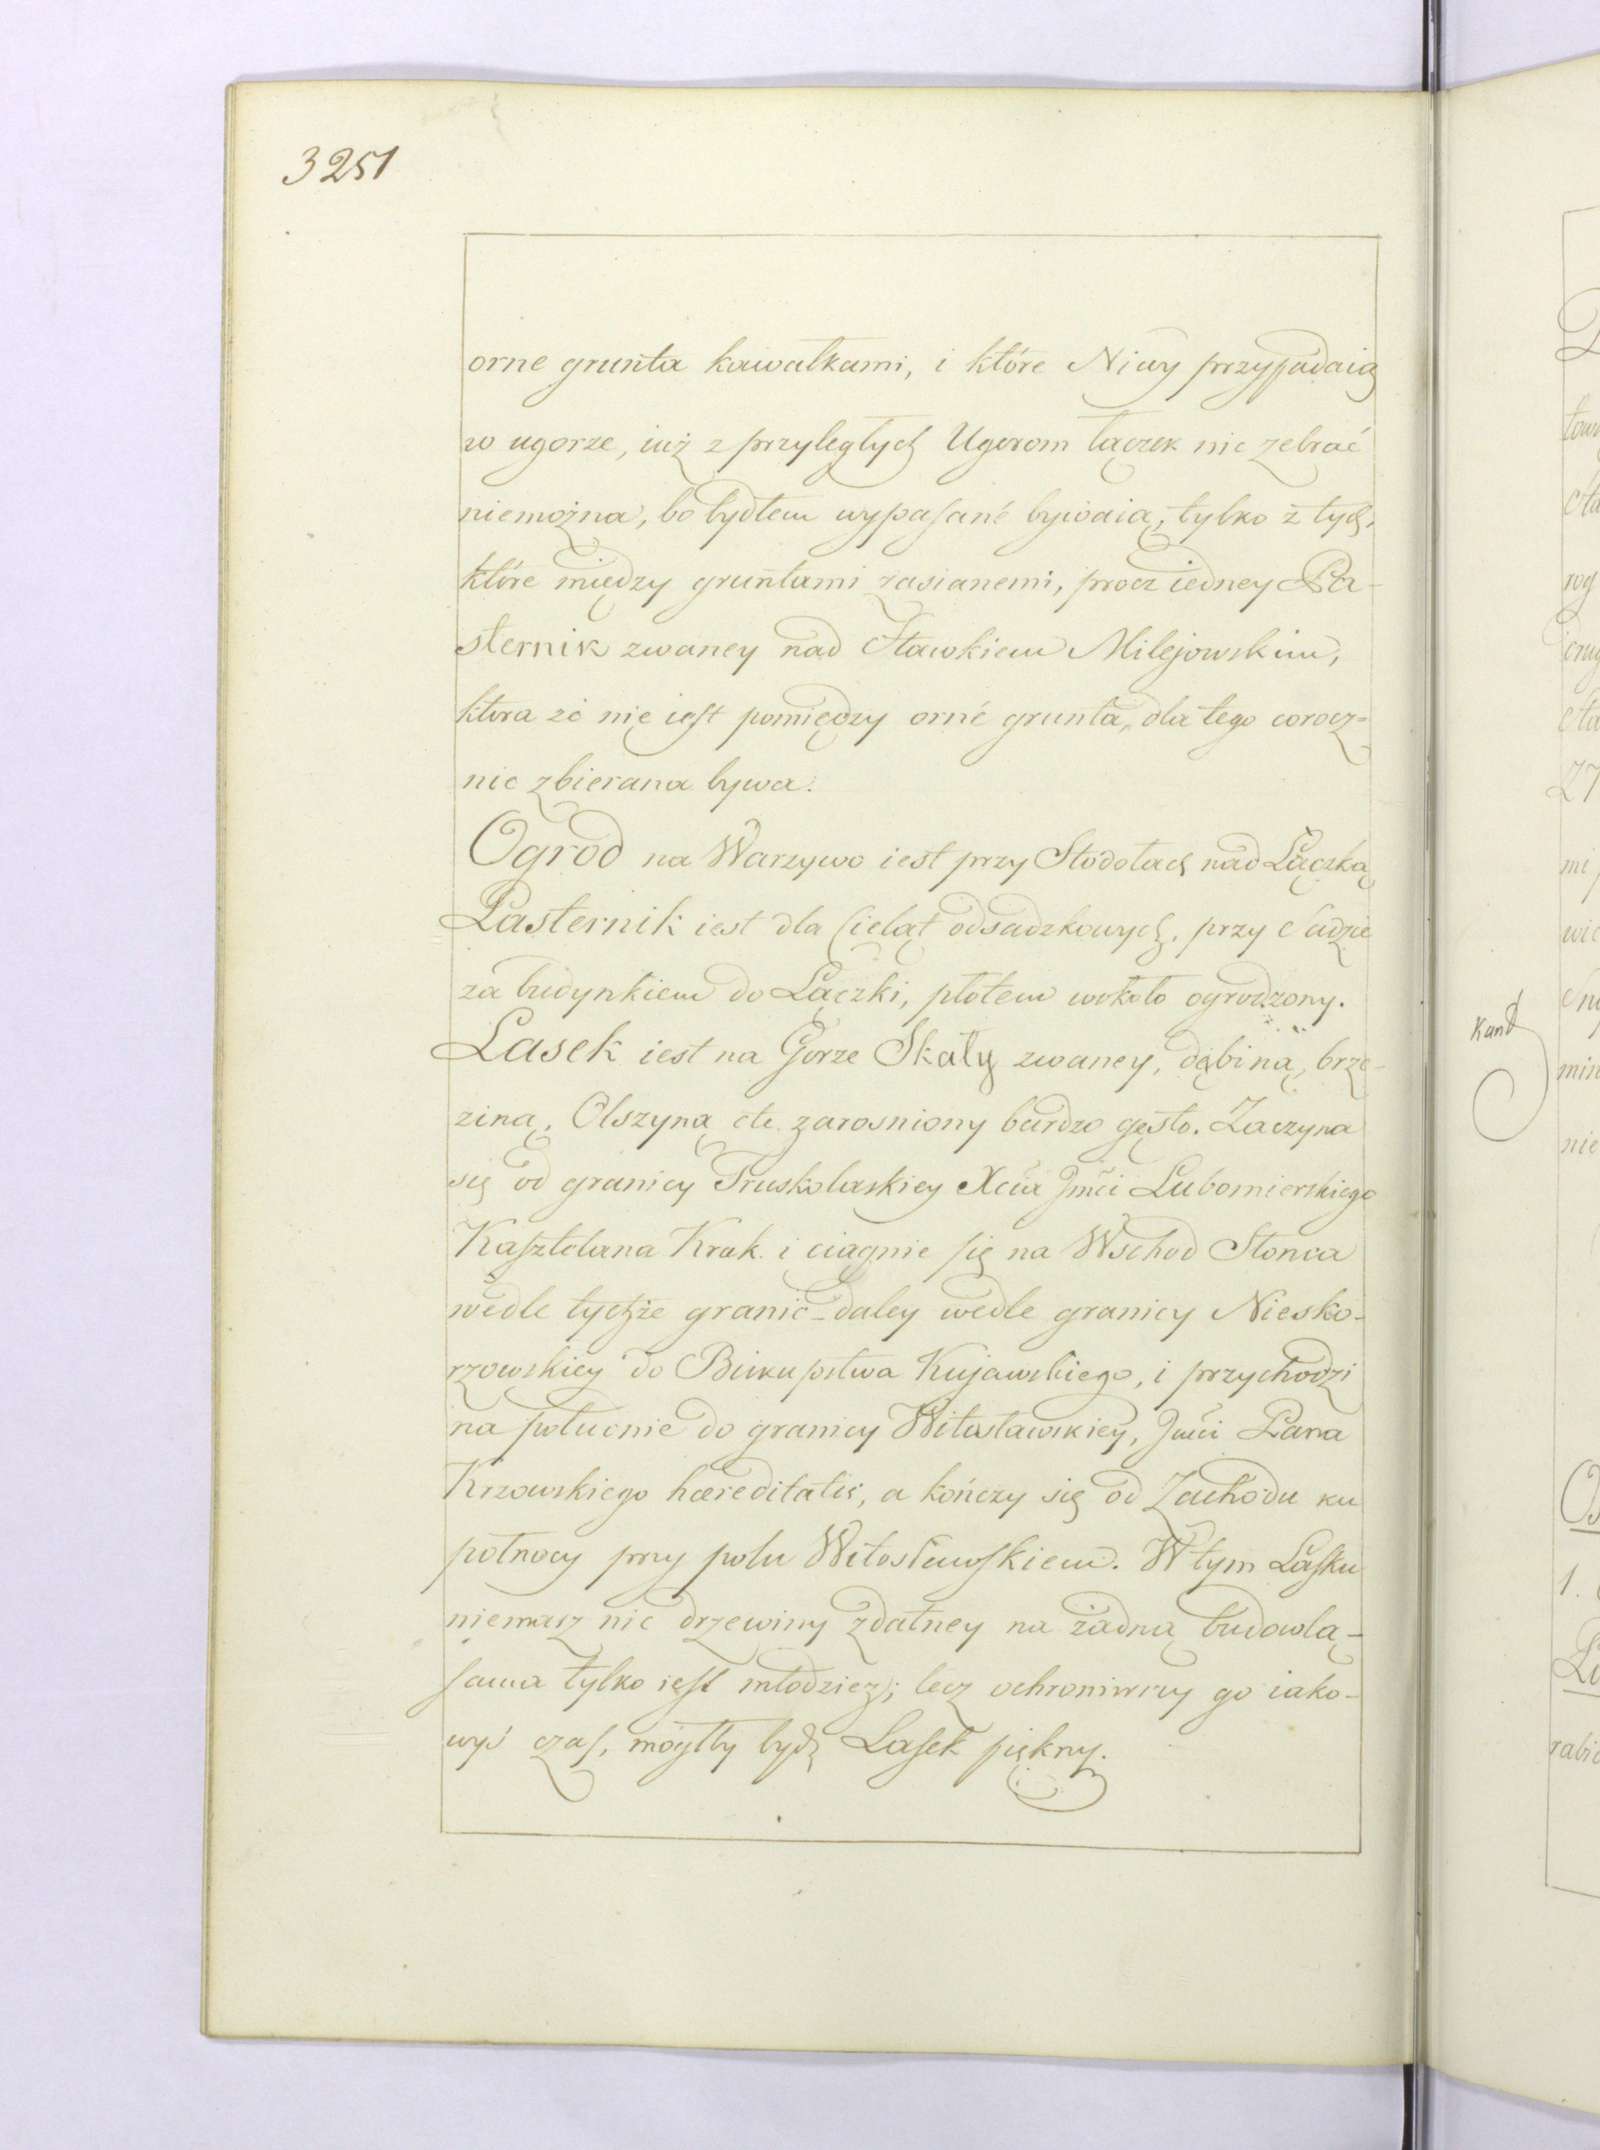 3251
orne grunta kawałkami, i które Niwy przypadaią
w ugorze, iuż z przyległych Ugorom łączek nic zebrać
niemożna, bo bydłem wypasané bywaią, tylko z tych,
które między gruntami zasianemi, procz iedney Pa-
sternik zwaney nad Stawkiem Milejowskim,
ktora że nie iest pomiędzy orné grunta, dla tego corocz=
nie zbierana bywa.
Ogrod na Warzywo iest przy Stodołach nad Łączką
Pasternik iest dla Cieląt odsadzkowych, przy Sadzie
za budynkiem do Łączki, płotem wokoło ogrodzony.
Lasek iest na Gorze Skały zwaney, dębiną, brze-
ziną, Olszyną etc. zarosniony bardzo gęsto. Zaczyna
się od granicy Truskolaskiey Xcia Jmći Lubomierskiego
Kasztelana Krak. i ciągnie się na Wschod Słonca
wedle tychże granic - daley wedle granicy Niesko-
rzowskiey do Biskupstwa Kujawskiego, i przychodzi
na południe do granicy Witosławskiey, Jmći Pana
Krzowskiego hæreditatis, a kończy się od Zachodu ku
połnocy przy polu Witosławskiem. W tym Lasku
niemasz nic drzewiny zdatney na żadną budowlą -
sama tylko iest młodzież; lecz ochroniwszy go iako-
wyś czas, mógłby bydź Lasek piękny.
Kant